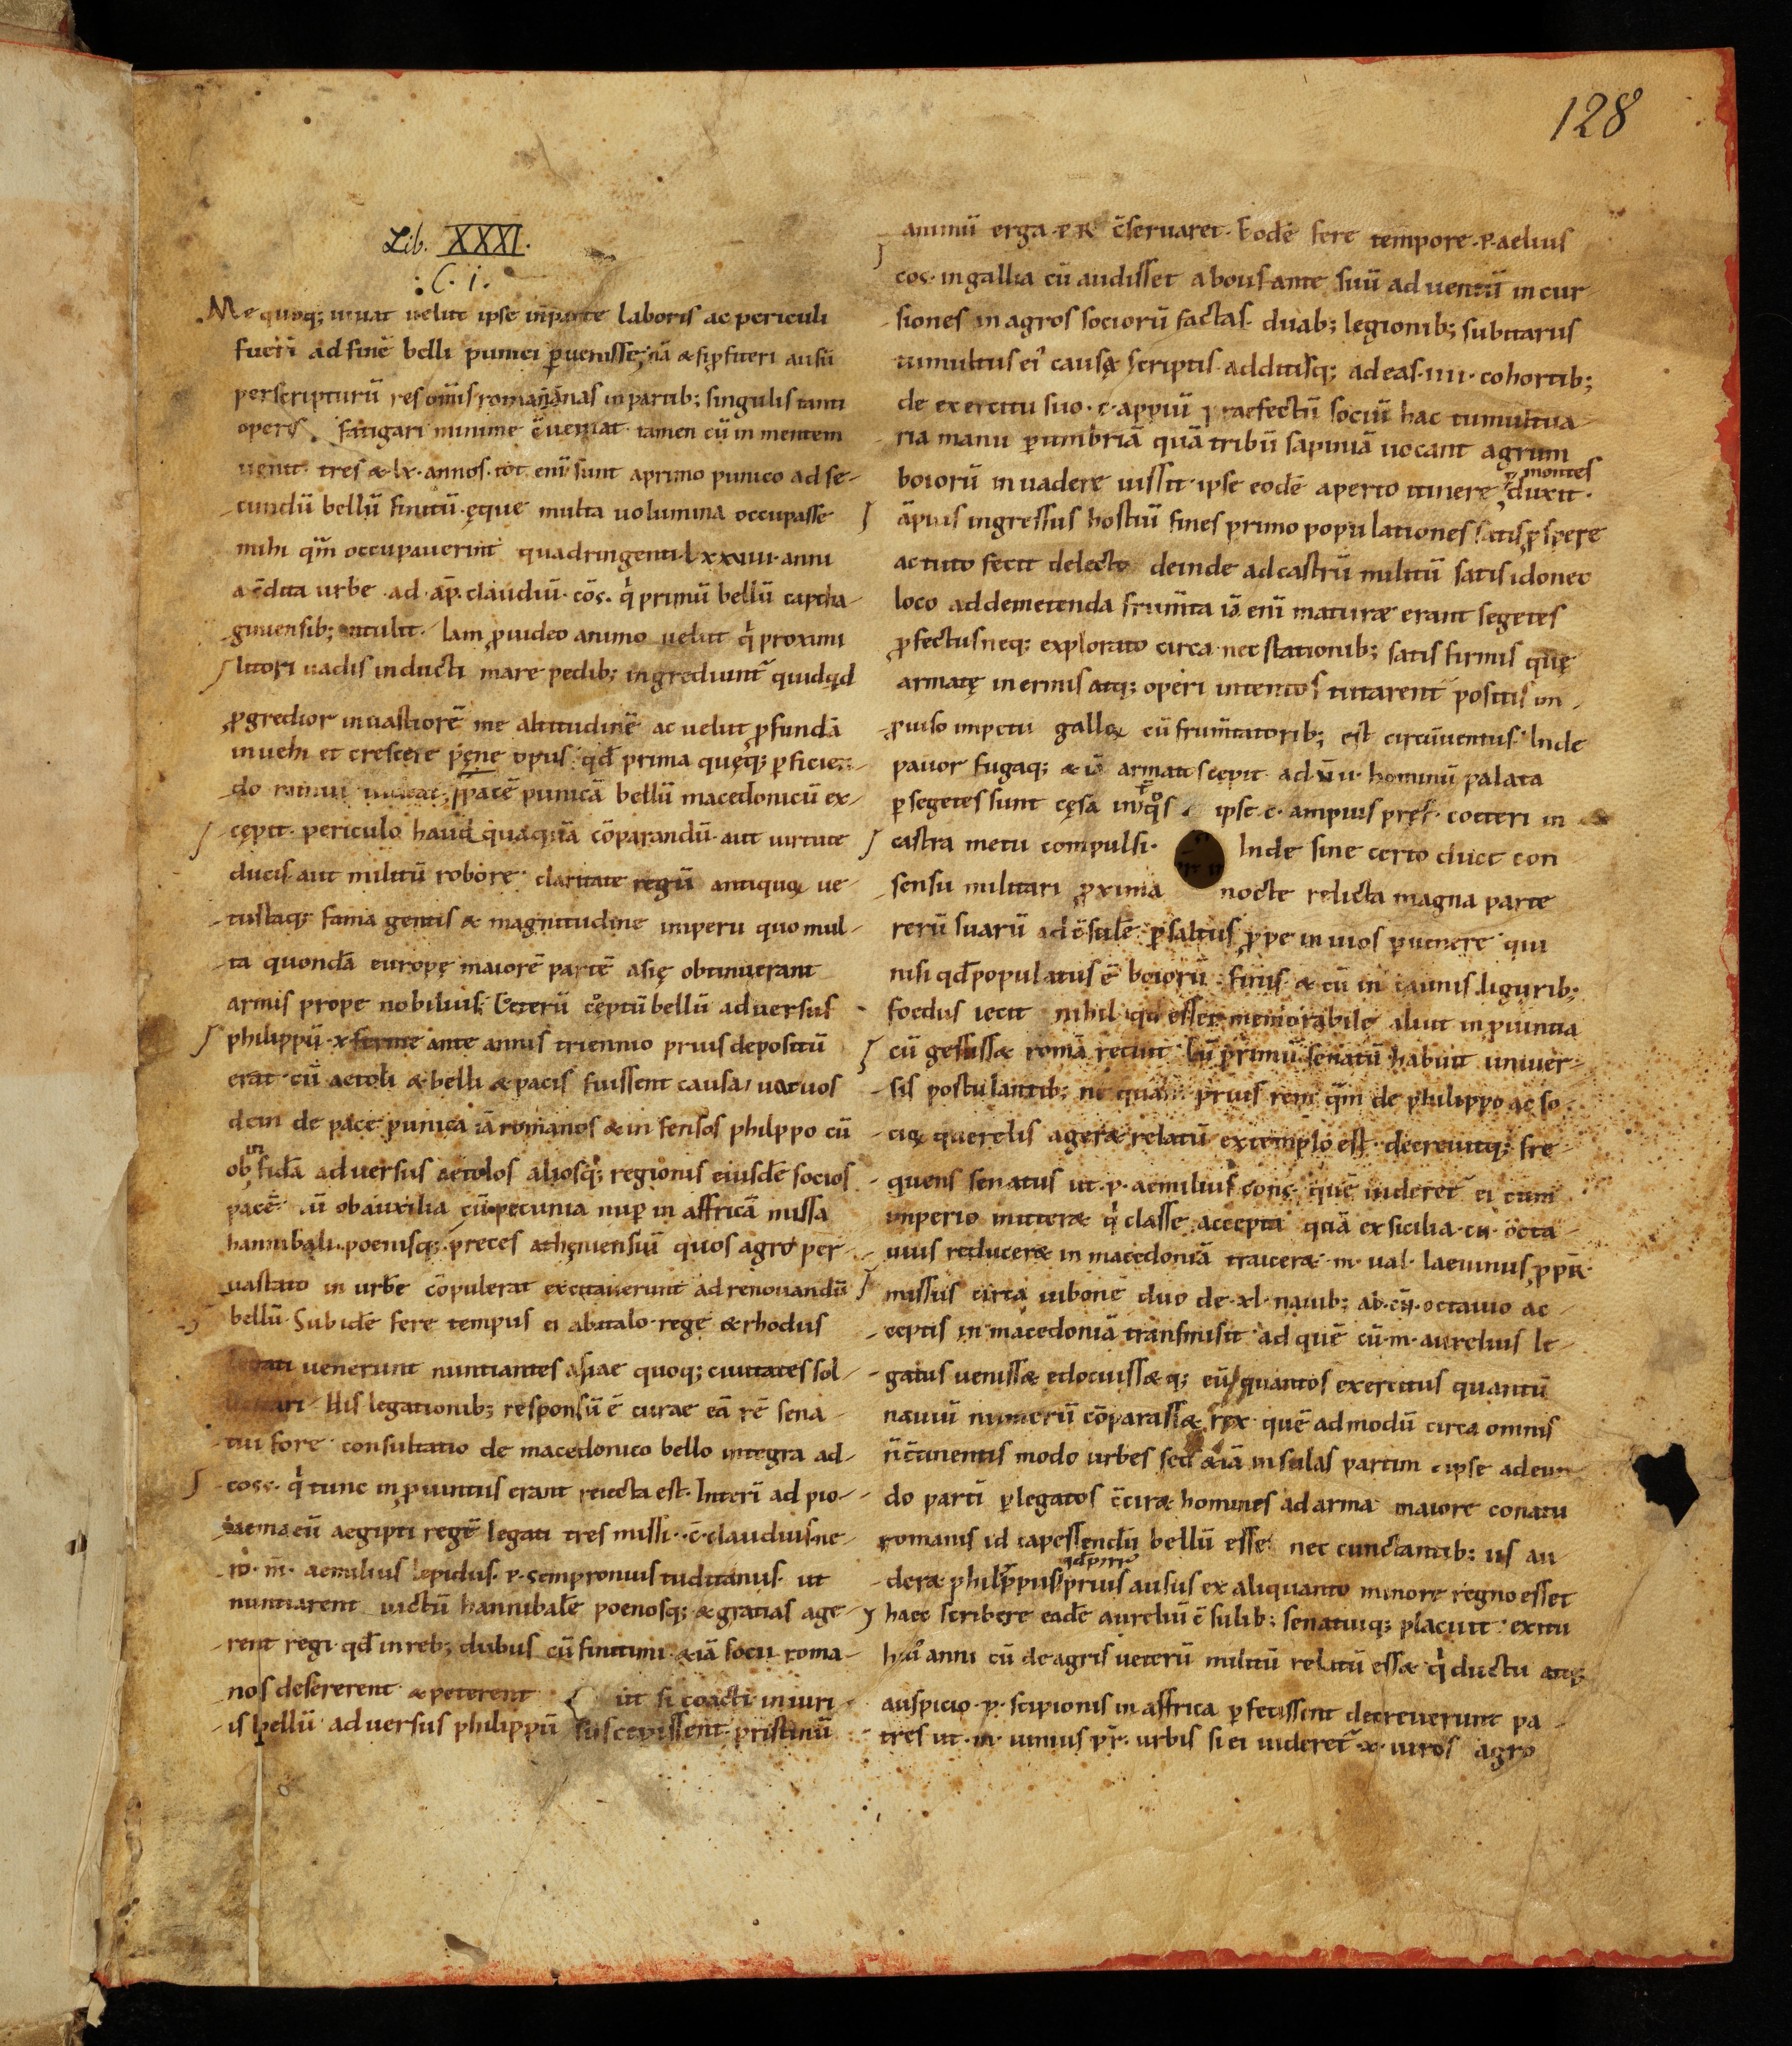 128
Lib. XXXI.
C. i.
Me quoq; iuuat uelut ipse in parte laboris ac periculi
fueri ad finē belli punici ꝑuenisse; nā & si ꝓfiteri ausū
perscripturū res om̄is romanas in partib; singulis tanti
operis fatigari minime c̄ueniat tamen cū in mentem
uenit tres & lx annos tot eni sunt a primo punico ad se-
cundū bellū finitū ęque multa uolumina occupasse
mihi qm̄ occupauerint quadringenti lxxxuiii anni
a c̄dita urbe ad ap̄. claudiū. cōs. q̇ primū bellū cartha-
giniensib; intulit. Iam ꝓuideo animo uelut q̇ proximi
litori uadis inducti mare pedib; ingrediunt̄ quidqd
ꝓgredior in uastiorē me altitudinē ac uelut ꝓfundā
inuehi et crescere pęne opus qd̄ prima quęq; ꝑficien-
do minui uidebat. pacē punicā bellū macedonicū ex-
cępit. periculo haud quaquā cōparandū aut uirtute
ducis aut militū robore claritate regū antiquoꝝ ue-
tustaq; fama gentis & magnitudine imperii quo mul-
ta quondā europę maiorē partē asię obtinuerant
armis prope nobilius. Ceterū cęptū bellū aduersus
philippū x ferme ante annis triennio prius depositū
erat cū aetoli & belli & pacis fuissent causa uacuos
dein de pace punica iā romanos & infensos philppo cū
ob infidā aduersus aetolos aliosq; regionis eiusdē socios
pacē tū ob auxilia cū pecunia nuꝑ in affricā missa
hannibali poenisq; preces athęniensiū quos agro per-
uastato in urbē cōpulerat excitauerunt ad renouandū
bellū. Sub idē fere tempus ei abtalo rege & rhodus
legati uenerunt nuntiantes asiae quoq; ciuitates sol-
licitari His legationib; responsū ē curae eā rē sena-
tui fore consultatio de macedonico bello integra ad-
coss. q̇ tunc in ꝓuintiis erant reiecta est. Interī ad pto-
laemaeū aegipti regē legati tres missi. c. claudius ne-
ro. m̄. aemilius lepidus. p. sempronius tuditanus. ut
nuntiarent uictū hannibalē poenosq; & gratias age-
rent regi qd̄ in reb; dubus cū finitimi & iā socii roma-
nos desererent & peterent ut si coacti iniuri-
is bellū aduersus philippū suscepissent pristinū
animū erga PR c̄seruaret. Eodē fere tempore. P. aelius
cos. in gallia cū audisset a bois ante suū aduentū incur-
siones in agros sociorū factas. duab; legionib; subitarus
tumultus ei causę scriptis additisq; ad eas. iiii. cohortib;
de exercitu suo. c. appiū praefectū sociū hac tumultua-
ria manu ꝑ umbriā quā tribū sapiniā uocant agrum
boiorū inuadere iussit ipse eodē aperto itinere ꝑ montes duxit.
āpius ingressus hostiū fines primo populationes satis ꝓspere
ac tuto fecit delecto deinde ad castrū mutilū satis idoneo
loco ad demetenda frum̄ta iā eni maturae erant segetes
ꝓfectus neq; explorato circa nec stationib; satis firmis quę
armatę inermis atq; operi intentos tutarent̄ positis im-
ꝓuiso impetu galloꝝ cū frum̄tatorib; est circūuentus. Inde
pauor fugaq; & iā armatos cępit ad uii hominū palata
ꝑ segetes sunt cęsa ipse c. ampius pręf. ceteri in
castra metu compulsi. Inde sine certo duce con
sensu militari ꝓxima nocte relicta magna parte
rerū suarū ad c̄sulē ꝑ saltus ꝓpe inuios ꝑuenere qui
nisi qd̄ populatus ē boiorū finis & cū incaunis ligurib;
foedus iecit nihil qd̄ esset memorabile aliut in ꝓuintia
cū gessiss& romā rediit Cū primū senatū habuit uniuer-
sis postulantib; ne quā prius rem qm̄ de philippo ac so-
cioꝝ querelis ager& relatū extemplo est. decreuitq; fre-
quens senatus ut. p. aemilius cons. quē uideret̄ ei cum
imperio mitter& q̇ classe accepta quā ex sicilia cn. octa-
uius reducer& in macedoniā traicer& m. ual. laeuinus ꝓpr̄
missus circa uibonē duo de xl. nauib; ab cn. octauio ac-
ceptis in macedoniā transmisit ad quē cū m. aurelius le-
gatus ueniss& edocuiss& q; eū quantos exercitus quantū
nauiū numerū cōparass& rex quē ad modū circa omnis
n̄ c̄tinentis modo urbes sed & iā insulas partim ipse adeun-
do partī ꝑ legatos c̄cir& homines ad arma maiore conatu
romanis id capessendū bellū esse nec cunctantib; iis au-
der& philippus qd̄ pirr prius ausus ex aliquanto minore regno esset
haec scribere eadē aureliū c̄sulib; senatuiq; placuit exitu
hui anni cū de agris ueterū militū relatū ess& q̇ ductu atq;
auspicio. p. scipionis in affrica ꝑfecissent decreuerunt pa-
tres ut. m. iunius pr̄. urbis si ei uideret̄ x. uiros agro